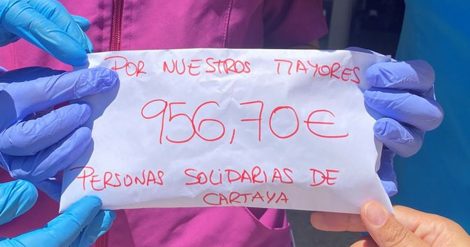 POR NUESTROS MAYORES
956,70€
PERSONAS SOLIDARIAS DE
CARTAYA